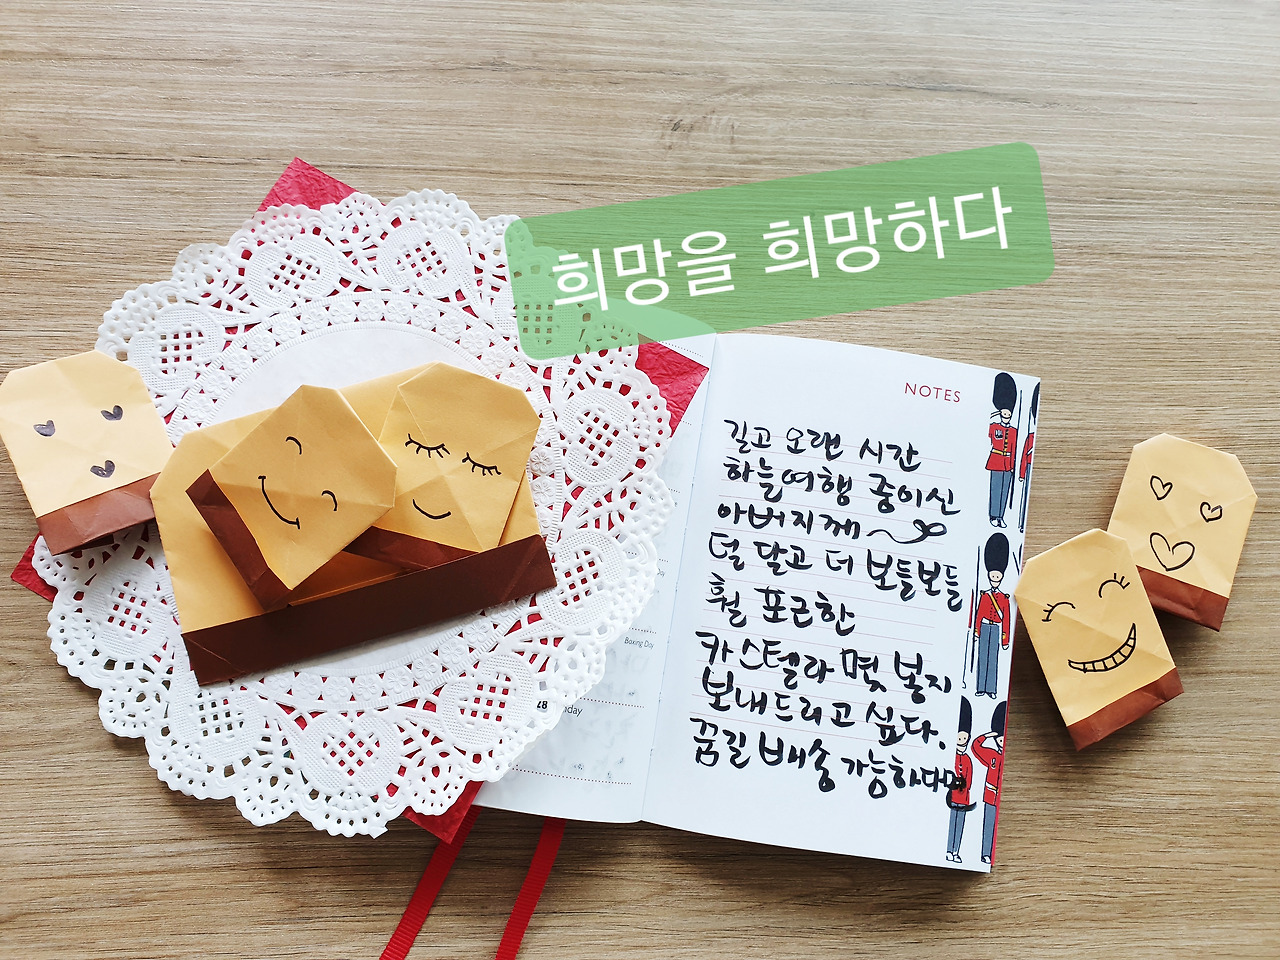 희망을 희망하다
NOTES
길고 오랜 시간
하늘여행 중이신
아버지께
덜 달고 더 보들보들
훨 포근한
카스텔라 몇 봉지
보내드리고 싶다.
꿈길 배송 가능하다면
Boxing Day
28